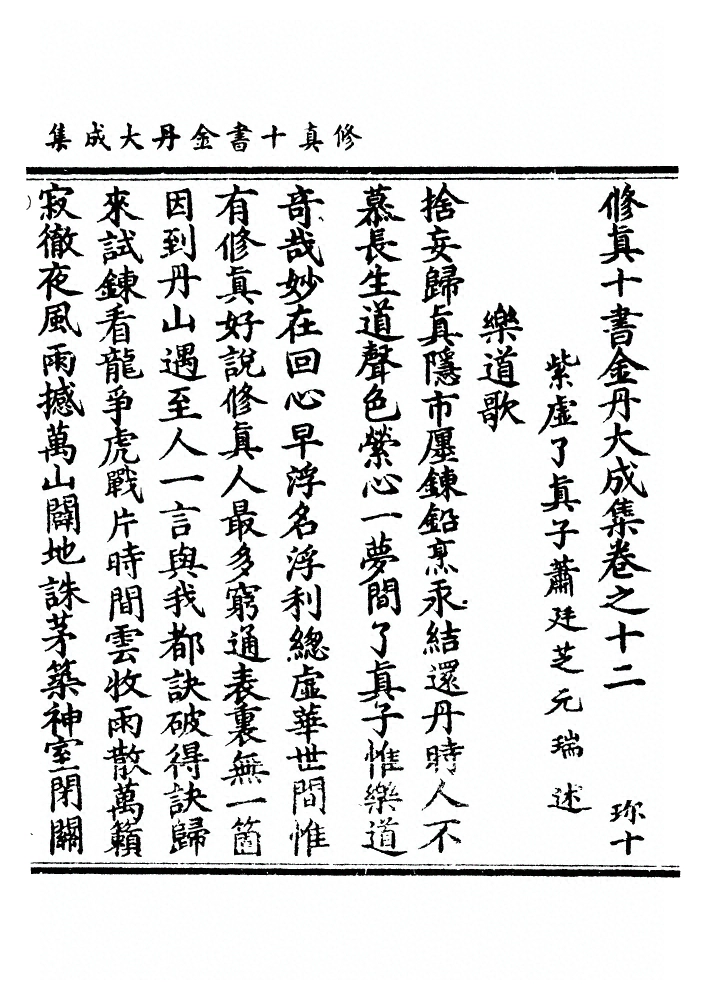 修真十書金丹大成集
修真十書金丹大成集卷之十二 珎十
紫虛了真子蕭廷芝元瑞述
樂道歌
捨妄歸真隱市廛鍊鉛烹汞結還丹時人不
慕長生道聲色縈心一夢間了真子惟樂道
竒哉妙在回心早浮名浮利總虛華世間惟
有修真好說修真人最多窮通表裏無一箇
因到丹山遇至人一言與我都訣破得訣歸
來試鍊看龍爭虎戰片時間雲收雨散萬籟
寂徹夜風雨撼萬山闢地誅茅築神室閉關